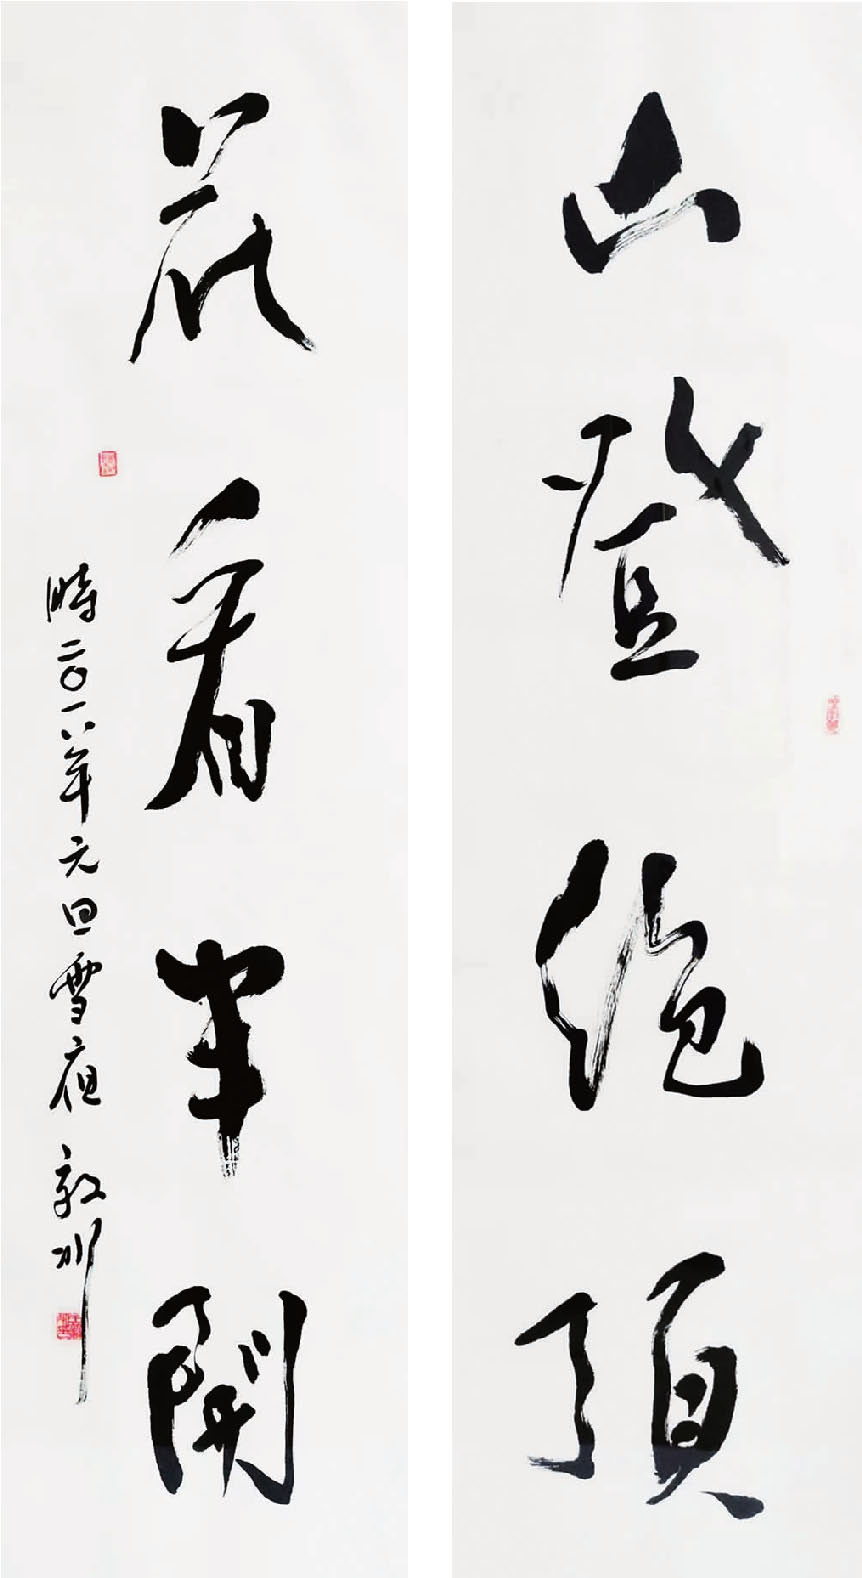 山登絕頂
花看半開
時二〇一八年元旦雪夜 敦邠